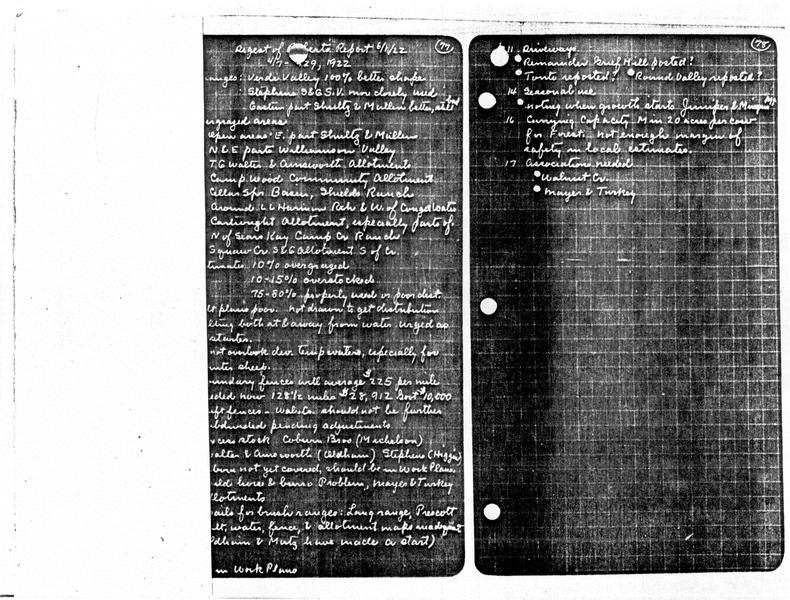 Digest of Roberts Report 6/1/22
4/7- 29, 1922
anges: Verde Valley 100% better shape
Stephens S&G.S.V. more closely used
Eastern part Shultz & Mullen better, still
ergrazed areas
open areas E. part Shultz & Mullen
N & E parts Williamson Valley
T.G Walter & Ainsworth Allotments
Camp Wood Community Allotment
Cellar Spr. Basin, Shields Ranch
Around LL Harmon Rch & W. of
Cartwright Allotment, especially parts of
N of Sears Kay Camp Cr Ranch
Squaw Cr. S&G allotment S of Cr.
timates 10% overgrazed
10-15% overstocked
75-80% properly used or poor dist.
lt plans poor. not drawn to get distribution
lting both at & away from water urged as
starter.
not overlook dev. temp waters, especially for
nter sheep.
undary fences will average $225 per mile
eded now 128 1/2 miles $28,912 Govt $10,000
ift fences - Wabsts. should not be further
bdivided pending adjustments
xcess stock Coburn Bros (Michelson)
alter & Ainsworth (Oldham) Stephens (Higgins)
not yet covered, should be in Work Plans.
ild horse & burro Problem, Mayer & Turkey
llotments
for brush ranges: Long range, Prescott
lt, water, fence, & allotment maps
ldham & Mutz have made a start)
in Work Plans
77
78
11 Driveways
Remainder Grief Hill posted?
Tonto reported? Round Valley reposted?
14 Seasonal use
noting when growth starts Juniper & Mingus
16 Carrying Capacity M in 20 acres per cow
for Forest. not enough margin of
safety in local estimates.
17 Associations needed
Walnut Cr.
Mayer & Turkey